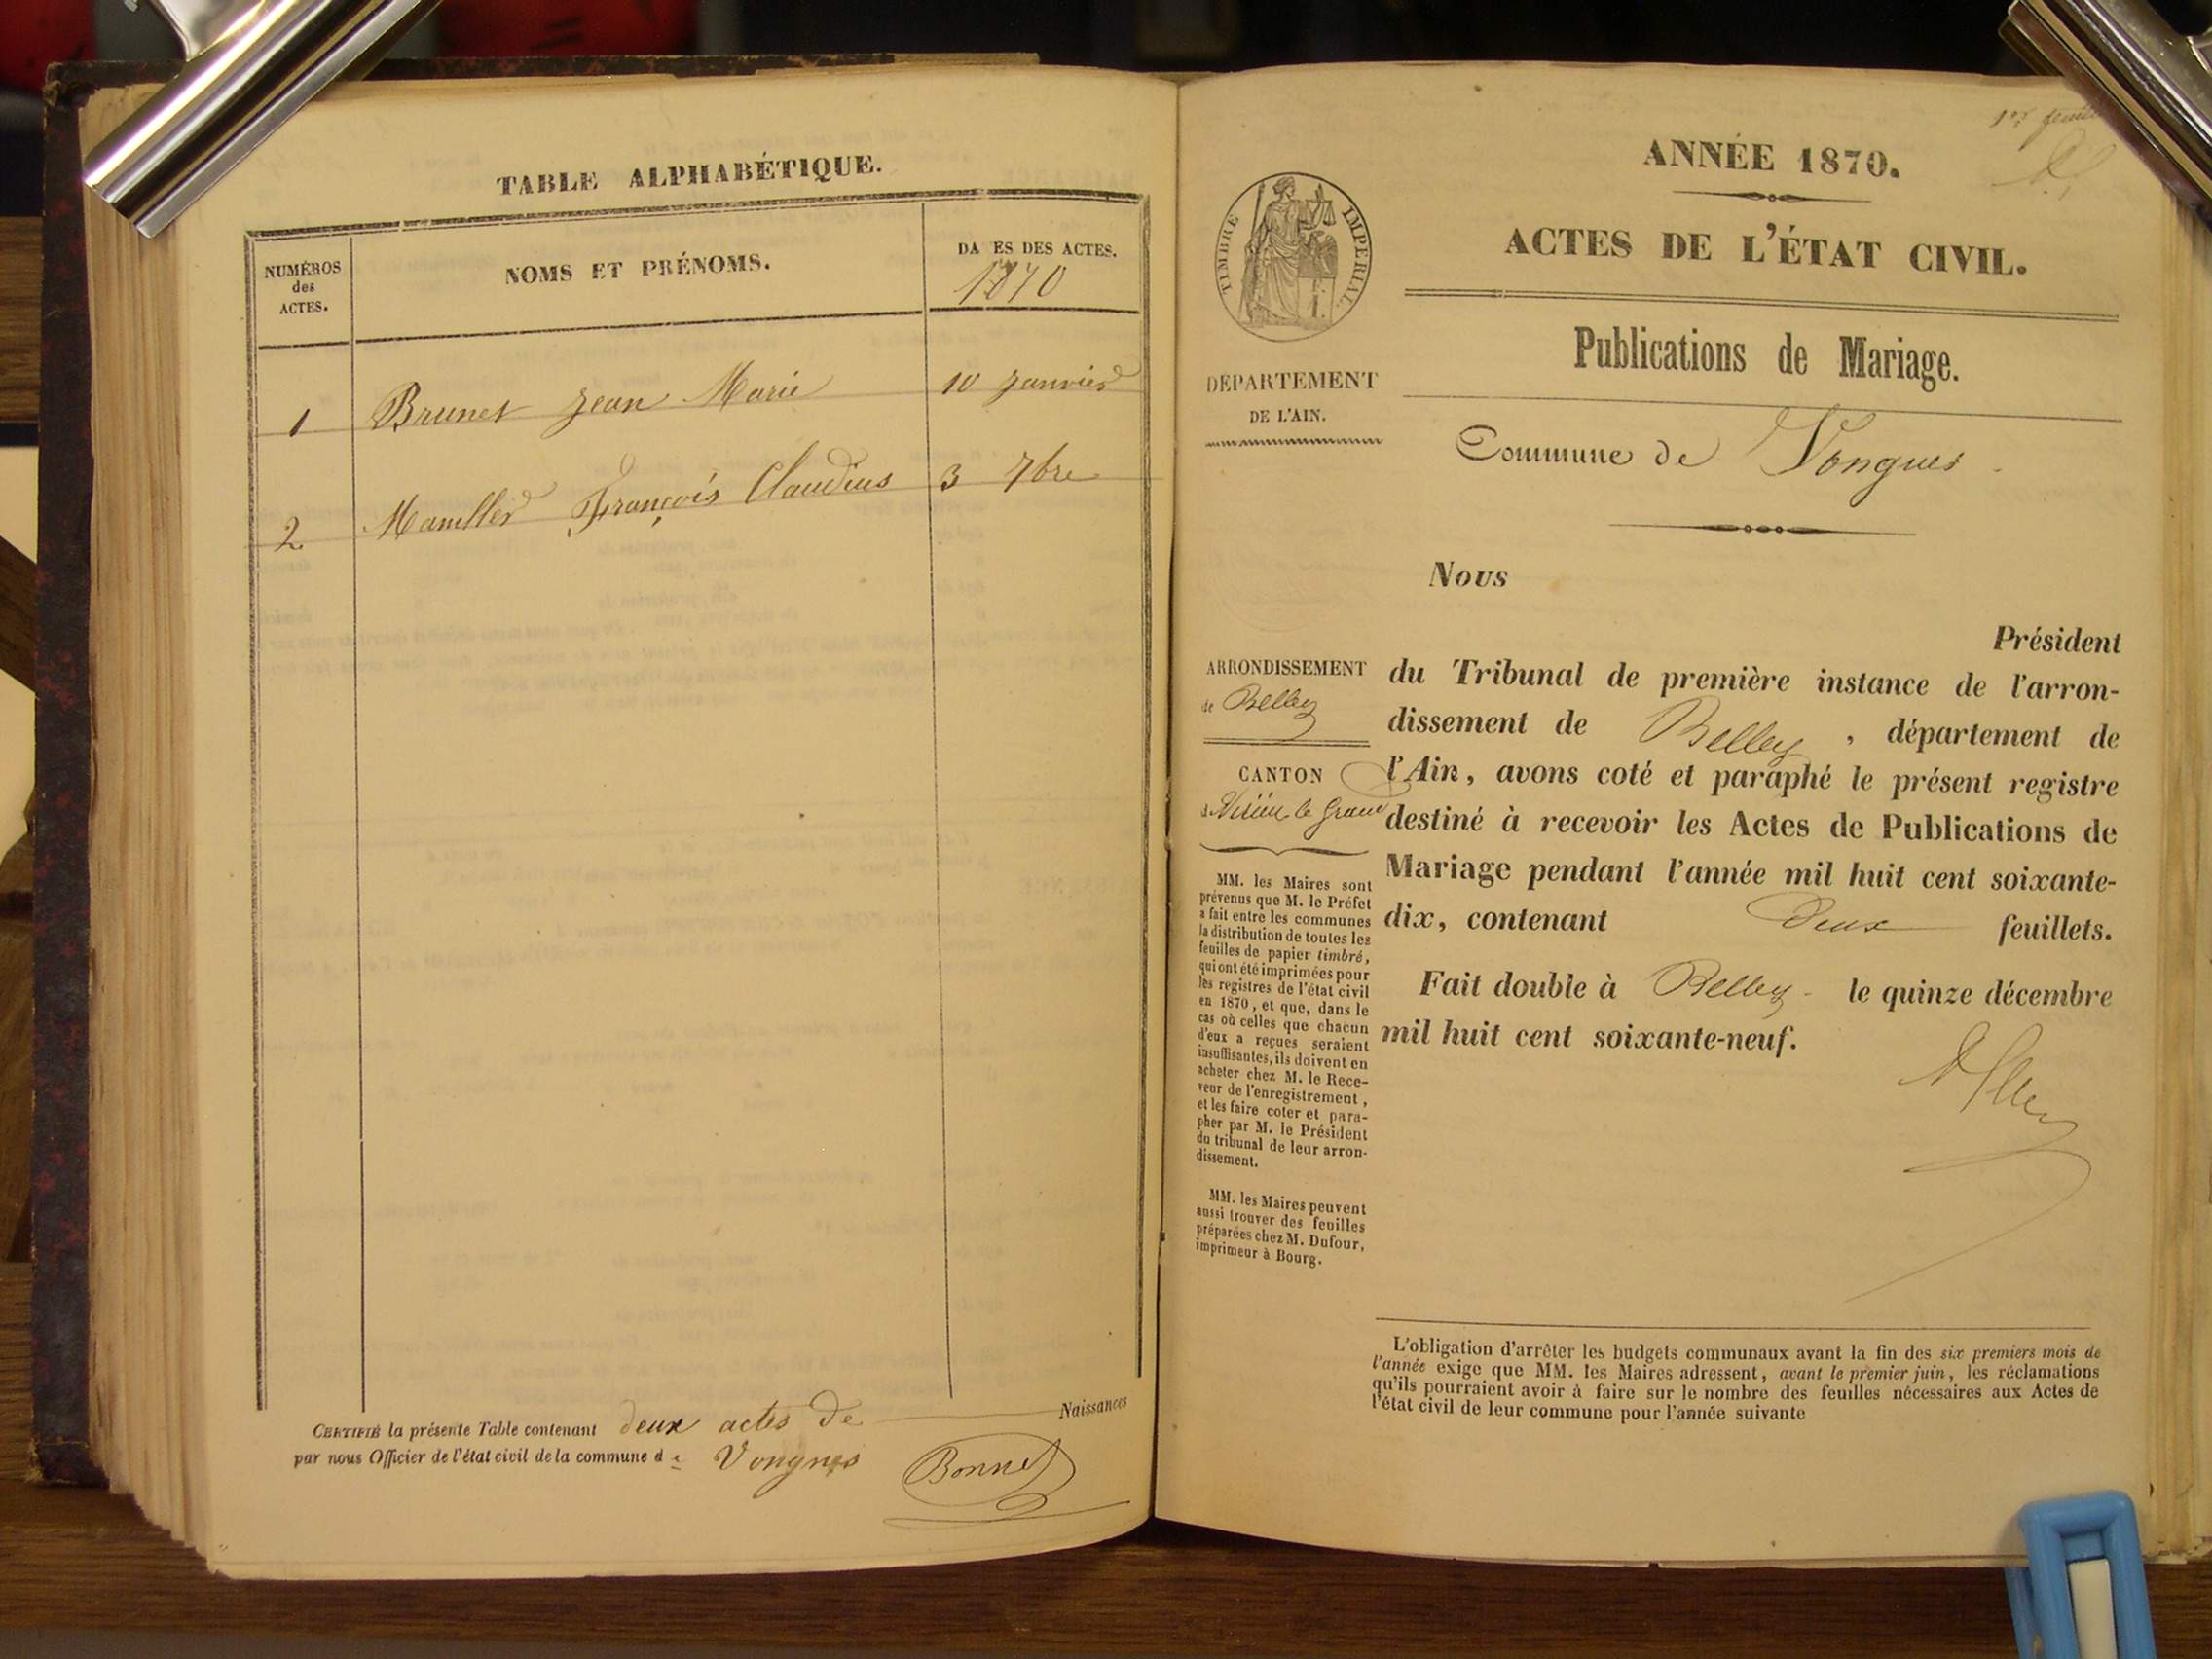 TABLE ALPHABÉTIQUE.
NUMÉROS
des
ACTES.
NOMS ET PRÉNOMS.
DA ES DES ACTES.
1870
1 Brunet Jean Marie 10 Janvier
2 François Claudius 3 7bre
CERTIFIÉ la présente Table contenant deux actes de Naissances
par nous Officier de l'état civil de la commune de Vongnes
Bonnet
1er feuillet
ANNÉE 1870.
ACTES DE L'ÉTAT CIVIL.
TIMBRE IMPÉRIAL
Publications de Mariage.
DÉPARTEMENT
DE L'AIN.
Commune de Vongnes
ARRONDISSEMENT
de Belley
CANTON
MM. les Maires sont
prévenus que M. le Préfet
a fait entre les communes
la distribution de toutes les
feuilles de papier timbré,
qui ont été imprimées pour
les registres de l'état civil
en 1870, et que, dans le
cas où celles que chacun
d'eux a reçues seraient
insuffisantes, ils doivent en
acheter chez M. le Rece-
veur de l'enregistrement,
et les faire coter et para-
pher par M. le Président
du tribunal de leur arron-
dissement.
MM. les Maires peuvent
aussi trouver des feuilles
préparées chez M. Dufour,
imprimeur à Bourg.
Nous
Président
du Tribunal de première instance de l'arron-
dissement de Belley, département de
l'Ain, avons coté et paraphé le présent registre
destiné à recevoir les Actes de Publications de
Mariage pendant l'année mil huit cent soixante-
dix, contenant Deux feuillets.
Fait double à Belley le quinze décembre
mil huit cent soixante-neuf.
L'obligation d'arrêter les budgets communaux avant la fin des six premiers mois de
l'année exige que MM. les Maires adressent, avant le premier juin, les réclamations
qu'ils pourraient avoir à faire sur le nombre des feuilles nécessaires aux Actes de
l'état civil de leur commune pour l'année suivante